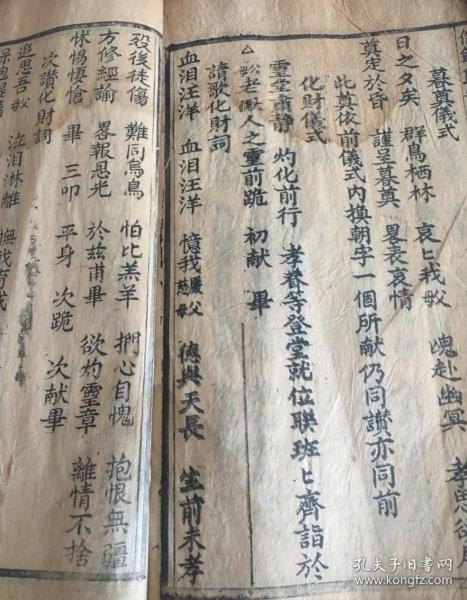 暮奠儀式
日之夕矣 群鳥栖林 哀匕我 魄赴幽冥 孝思
奠定於昏 謹呈暮奠 畧表哀情
此奠依前儀式內換朝字一個所獻仍同讃亦同前
化財儀式
靈堂肅静 灼化前行 孝眷等登堂就位聯班匕齊詣於
老 人之靈前跪 初献 畢
請歌化財詞
血泪汪洋 血泪汪洋 憶我嚴父慈母 德與天長 生前未孝
殁後徒傷 難同烏鳥 怕比羔羊 捫心自愧 抱恨無疆
方修經諭 畧報恩光 於兹甫畢 欲灼靈章 離情不捨
怵惕悽愴 畢 三叩 平身 次跪 次献畢
次讃化財詞
追思吾 泣泪淋離 撫我育我
孔夫子旧书网
www.kongfz.com